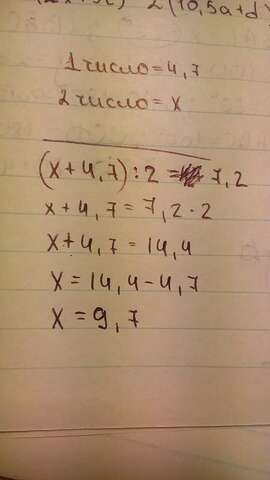 2(10,5a+d)
1 число = 4,7
2 число = x
(x+4,7):2 = 7,2
x+4,7 = 7,2·2
x+4,7 = 14,4
x = 14,4-4,7
x = 9,7